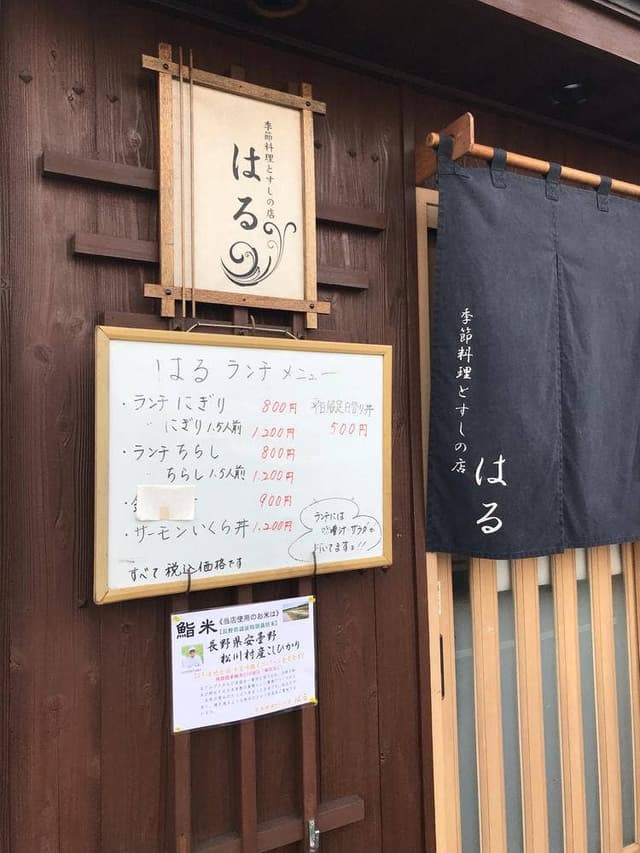 季節料理とすしの店
はる
はる ランチ メニュー
・ランチ にぎり 800円
〃 にぎり 1.5人前 1,200円
限定日替り丼
500円
・ランチ ちらし 800円
〃 ちらし 1.5人前 1,200円
900円
・サーモンいくら丼 1,200円
ランチには
サラダが
付いてます!!
すべて税込価格です
鮨米
《当店使用のお米は》
長野県安曇野
松川村産こしひかり
季節料理とすしの店
はる